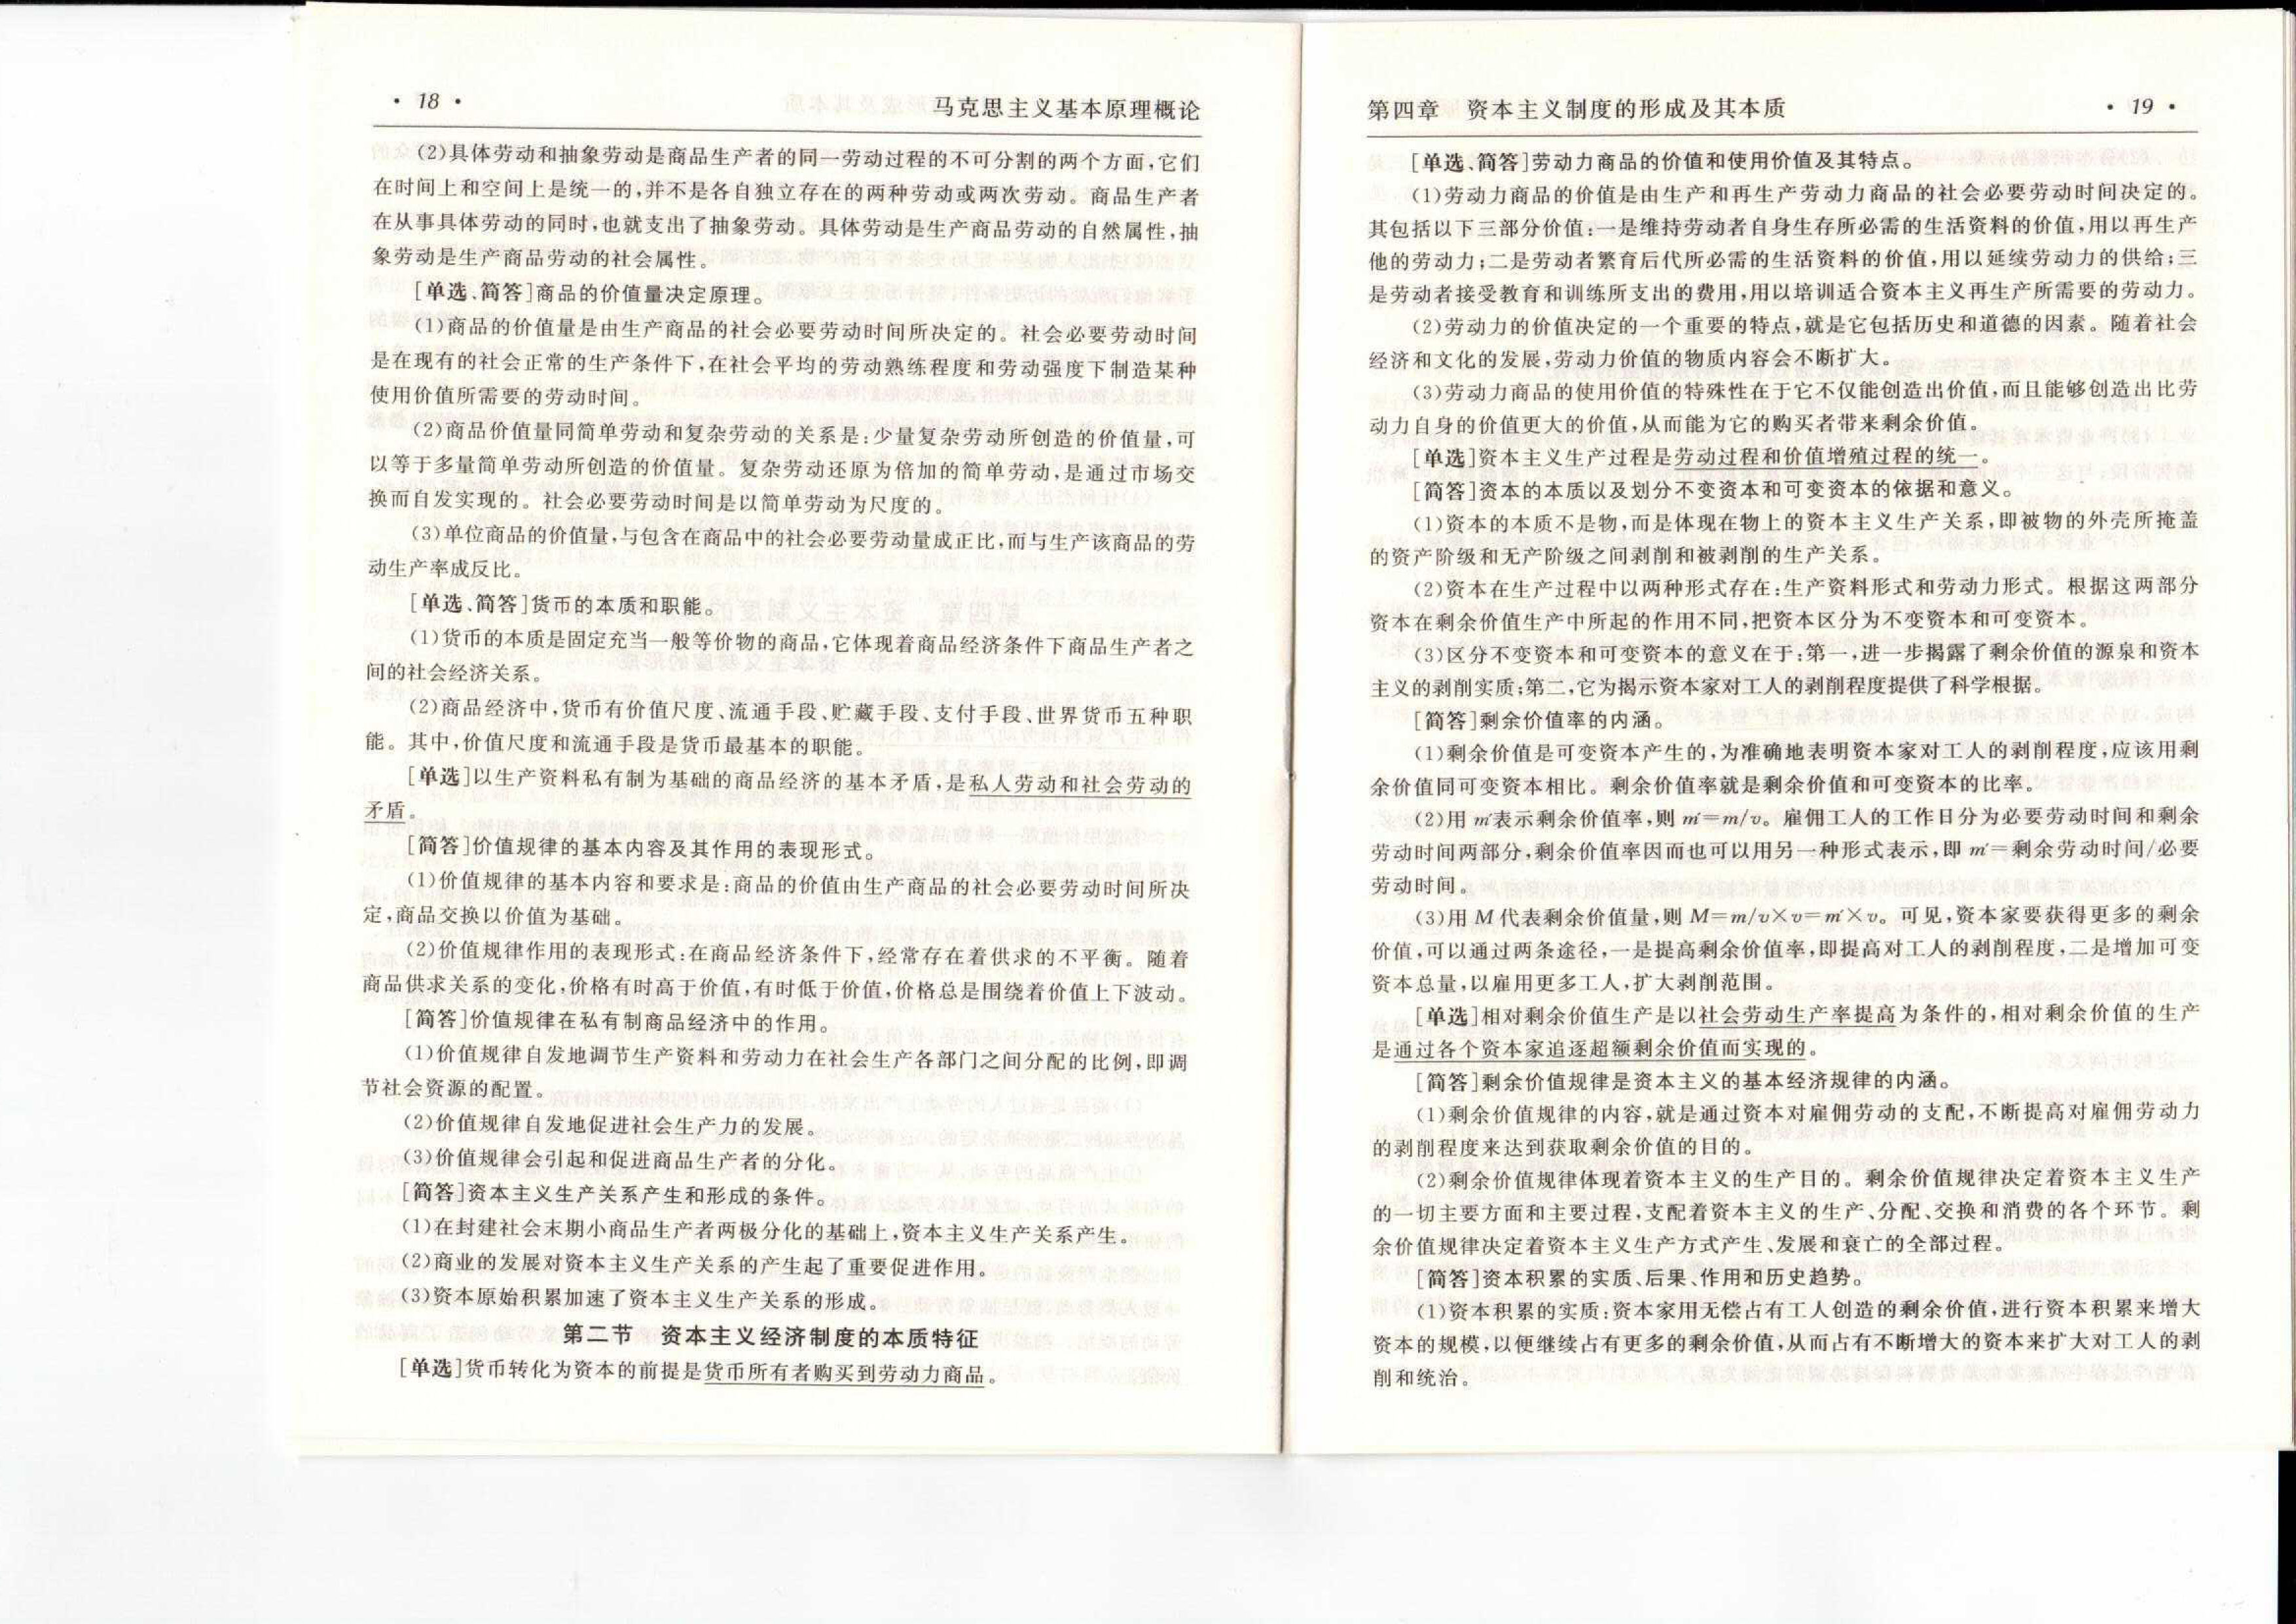 · 18 ·
马克思主义基本原理概论
(2)具体劳动和抽象劳动是商品生产者的同一劳动过程的不可分割的两个方面,它们
在时间上和空间上是统一的,并不是各自独立存在的两种劳动或两次劳动。商品生产者
在从事具体劳动的同时,也就支出了抽象劳动。具体劳动是生产商品劳动的自然属性,抽
象劳动是生产商品劳动的社会属性。
[单选、简答]商品的价值量决定原理。
(1)商品的价值量是由生产商品的社会必要劳动时间所决定的。社会必要劳动时间
是在现有的社会正常的生产条件下,在社会平均的劳动熟练程度和劳动强度下制造某种
使用价值所需要的劳动时间。
(2)商品价值量同简单劳动和复杂劳动的关系是:少量复杂劳动所创造的价值量,可
以等于多量简单劳动所创造的价值量。复杂劳动还原为倍加的简单劳动,是通过市场交
换而自发实现的。社会必要劳动时间是以简单劳动为尺度的。
(3)单位商品的价值量,与包含在商品中的社会必要劳动量成正比,而与生产该商品的劳
动生产率成反比。
[单选、简答]货币的本质和职能。
(1)货币的本质是固定充当一般等价物的商品,它体现着商品经济条件下商品生产者之
间的社会经济关系。
(2)商品经济中,货币有价值尺度、流通手段、贮藏手段、支付手段、世界货币五种职
能。其中,价值尺度和流通手段是货币最基本的职能。
[单选]以生产资料私有制为基础的商品经济的基本矛盾,是私人劳动和社会劳动的
矛盾。
[简答]价值规律的基本内容及其作用的表现形式。
(1)价值规律的基本内容和要求是:商品的价值由生产商品的社会必要劳动时间所决
定,商品交换以价值为基础。
(2)价值规律作用的表现形式:在商品经济条件下,经常存在着供求的不平衡。随着
商品供求关系的变化,价格有时高于价值,有时低于价值,价格总是围绕着价值上下波动。
[简答]价值规律在私有制商品经济中的作用。
(1)价值规律自发地调节生产资料和劳动力在社会生产各部门之间分配的比例,即调
节社会资源的配置。
(2)价值规律自发地促进社会生产力的发展。
(3)价值规律会引起和促进商品生产者的分化。
[简答]资本主义生产关系产生和形成的条件。
(1)在封建社会末期小商品生产者两极分化的基础上,资本主义生产关系产生。
(2)商业的发展对资本主义生产关系的产生起了重要促进作用。
(3)资本原始积累加速了资本主义生产关系的形成。
第二节 资本主义经济制度的本质特征
[单选]货币转化为资本的前提是货币所有者购买到劳动力商品。
第四章 资本主义制度的形成及其本质
· 19 ·
[单选、简答]劳动力商品的价值和使用价值及其特点。
(1)劳动力商品的价值是由生产和再生产劳动力商品的社会必要劳动时间决定的。
其包括以下三部分价值:一是维持劳动者自身生存所必需的生活资料的价值,用以再生产
他的劳动力;二是劳动者繁育后代所必需的生活资料的价值,用以延续劳动力的供给;三
是劳动者接受教育和训练所支出的费用,用以培训适合资本主义再生产所需要的劳动力。
(2)劳动力的价值决定的一个重要的特点,就是它包括历史和道德的因素。随着社会
经济和文化的发展,劳动力价值的物质内容会不断扩大。
(3)劳动力商品的使用价值的特殊性在于它不仅能创造出价值,而且能够创造出比劳
动力自身的价值更大的价值,从而能为它的购买者带来剩余价值。
[单选]资本主义生产过程是劳动过程和价值增殖过程的统一。
[简答]资本的本质以及划分不变资本和可变资本的依据和意义。
(1)资本的本质不是物,而是体现在物上的资本主义生产关系,即被物的外壳所掩盖
的资产阶级和无产阶级之间剥削和被剥削的生产关系。
(2)资本在生产过程中以两种形式存在:生产资料形式和劳动力形式。根据这两部分
资本在剩余价值生产中所起的作用不同,把资本区分为不变资本和可变资本。
(3)区分不变资本和可变资本的意义在于:第一,进一步揭露了剩余价值的源泉和资本
主义的剥削实质;第二,它为揭示资本家对工人的剥削程度提供了科学根据。
[简答]剩余价值率的内涵。
(1)剩余价值是可变资本产生的,为准确地表明资本家对工人的剥削程度,应该用剩
余价值同可变资本相比。剩余价值率就是剩余价值和可变资本的比率。
(2)用 m′表示剩余价值率,则 m′=m/v。雇佣工人的工作日分为必要劳动时间和剩余
劳动时间两部分,剩余价值率因而也可以用另一种形式表示,即 m′=剩余劳动时间/必要
劳动时间。
(3)用 M 代表剩余价值量,则 M=m/v×v=m′×v。可见,资本家要获得更多的剩余
价值,可以通过两条途径,一是提高剩余价值率,即提高对工人的剥削程度,二是增加可变
资本总量,以雇用更多工人,扩大剥削范围。
[单选]相对剩余价值生产是以社会劳动生产率提高为条件的,相对剩余价值的生产
是通过各个资本家追逐超额剩余价值而实现的。
[简答]剩余价值规律是资本主义的基本经济规律的内涵。
(1)剩余价值规律的内容,就是通过资本对雇佣劳动的支配,不断提高对雇佣劳动力
的剥削程度来达到获取剩余价值的目的。
(2)剩余价值规律体现着资本主义的生产目的。剩余价值规律决定着资本主义生产
的一切主要方面和主要过程,支配着资本主义的生产、分配、交换和消费的各个环节。剩
余价值规律决定着资本主义生产方式产生、发展和衰亡的全部过程。
[简答]资本积累的实质、后果、作用和历史趋势。
(1)资本积累的实质:资本家用无偿占有工人创造的剩余价值,进行资本积累来增大
资本的规模,以便继续占有更多的剩余价值,从而占有不断增大的资本来扩大对工人的剥
削和统治。